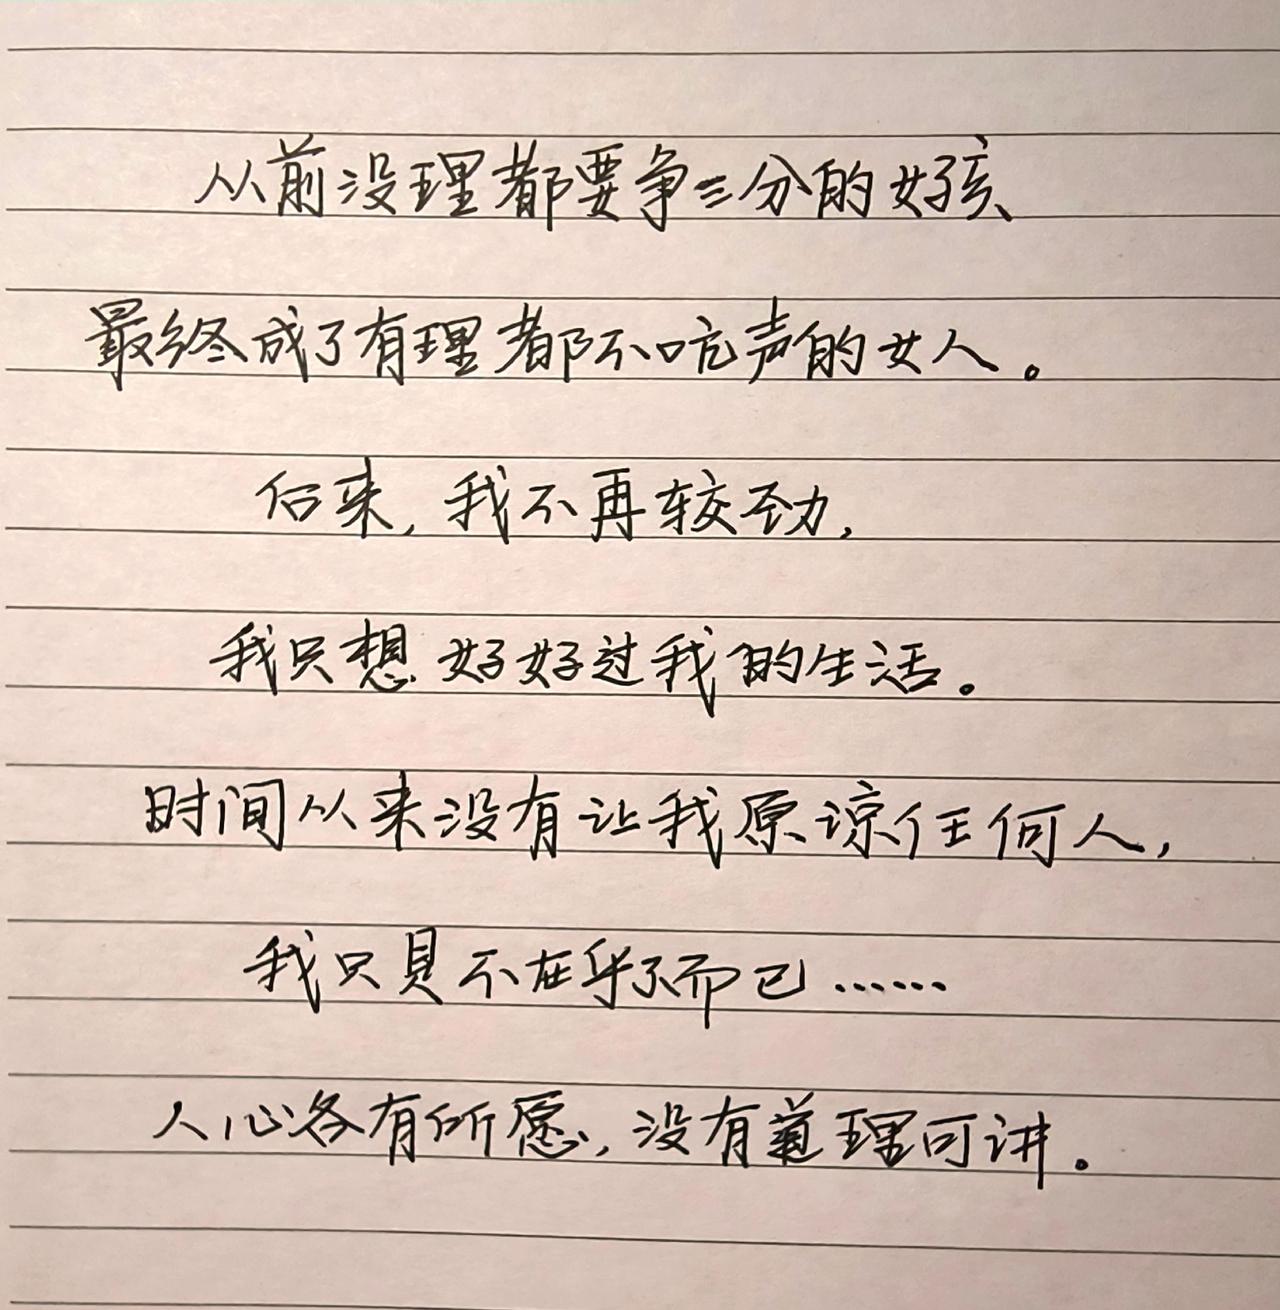 从前没理都要争三分的女孩
最终成了有理都不吭声的女人。
后来,我不再较劲,
我只想好好过我的生活。
时间从来没有让我原谅任何人,
我只是不在乎了而已……
人心各有所愿,没有道理可讲。